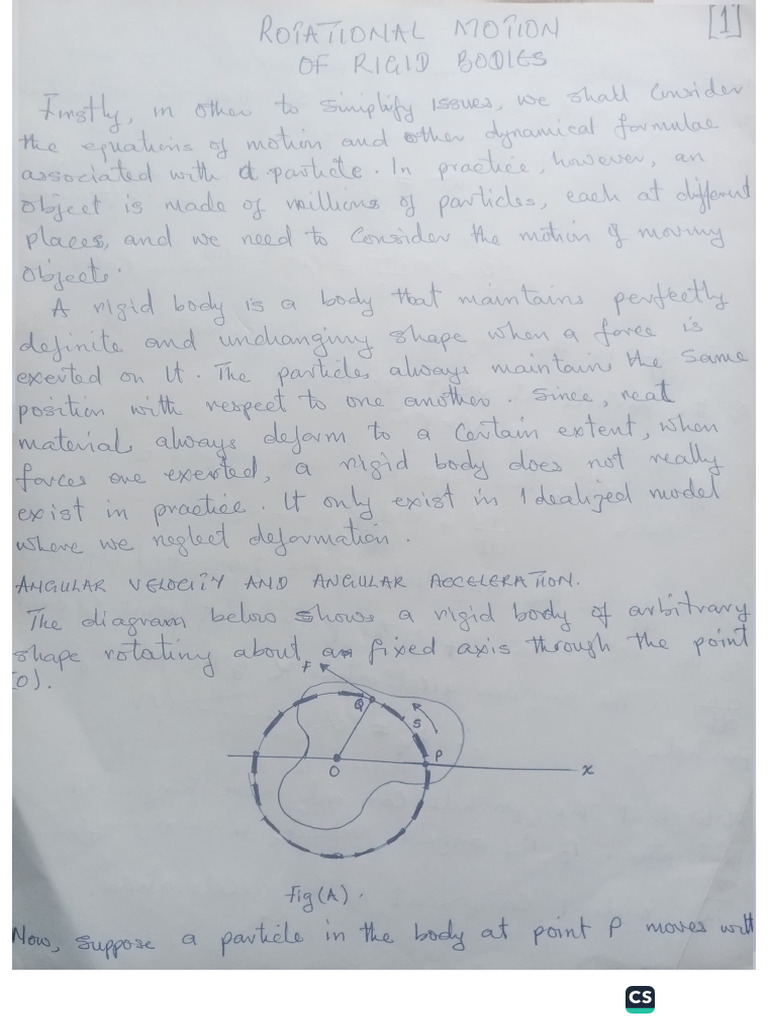 [1]
ROTATIONAL MOTION
OF RIGID BODIES
Firstly, in other to simplify issues, we shall consider
the equations of motion and other dynamical formulae
associated with a particle. In practice, however, an
object is made of millions of particles, each at different
places, and we need to consider the motion of moving
objects.
A rigid body is a body that maintains perfectly
definite and unchanging shape when a force is
exerted on it. The particles always maintain the same
position with respect to one another. Since, real
material always deform to a certain extent, when
forces are exerted, a rigid body does not really
exist in practice. It only exist in idealized model
where we neglect deformation.
ANGULAR VELOCITY AND ANGULAR ACCELERATION.
The diagram below shows a rigid body of arbitrary
shape rotating about a fixed axis through the point
(O).
F
Q
S
P
O
x
Fig (A).
Now, suppose a particle in the body at point P moves with
CS